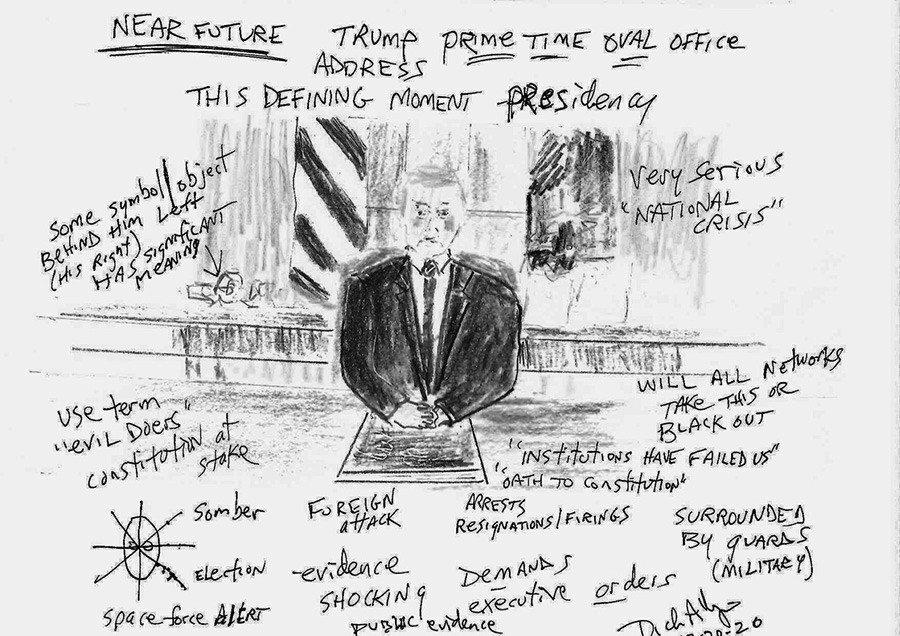 NEAR FUTURE TRUMP PRIME TIME OVAL OFFICE
ADDRESS
THIS DEFINING MOMENT PRESidency
Some symbol/object
BEHIND Him Left
(His Right)
HAS SIGNIFICANT
MEANING
Very Serious
"NATIONAL
CRISIS"
Use term
"EVIL DOERS"
Constitution at
stake
WILL ALL NETWORKS
TAKE THIS OR
BLACK OUT
"INSTITUTIONS HAVE FAILED US"
"OATH TO CONSTITUTION"
Somber
ELECTION
space force ALERT
FOREIGN
attack
-evidence
SHOCKING
PUBLIC evidence
ARRESTS
RESIGNATIONS/FIRINGS
DEMANDS
executive orders
SURROUNDED
By guards
(MILITARY)